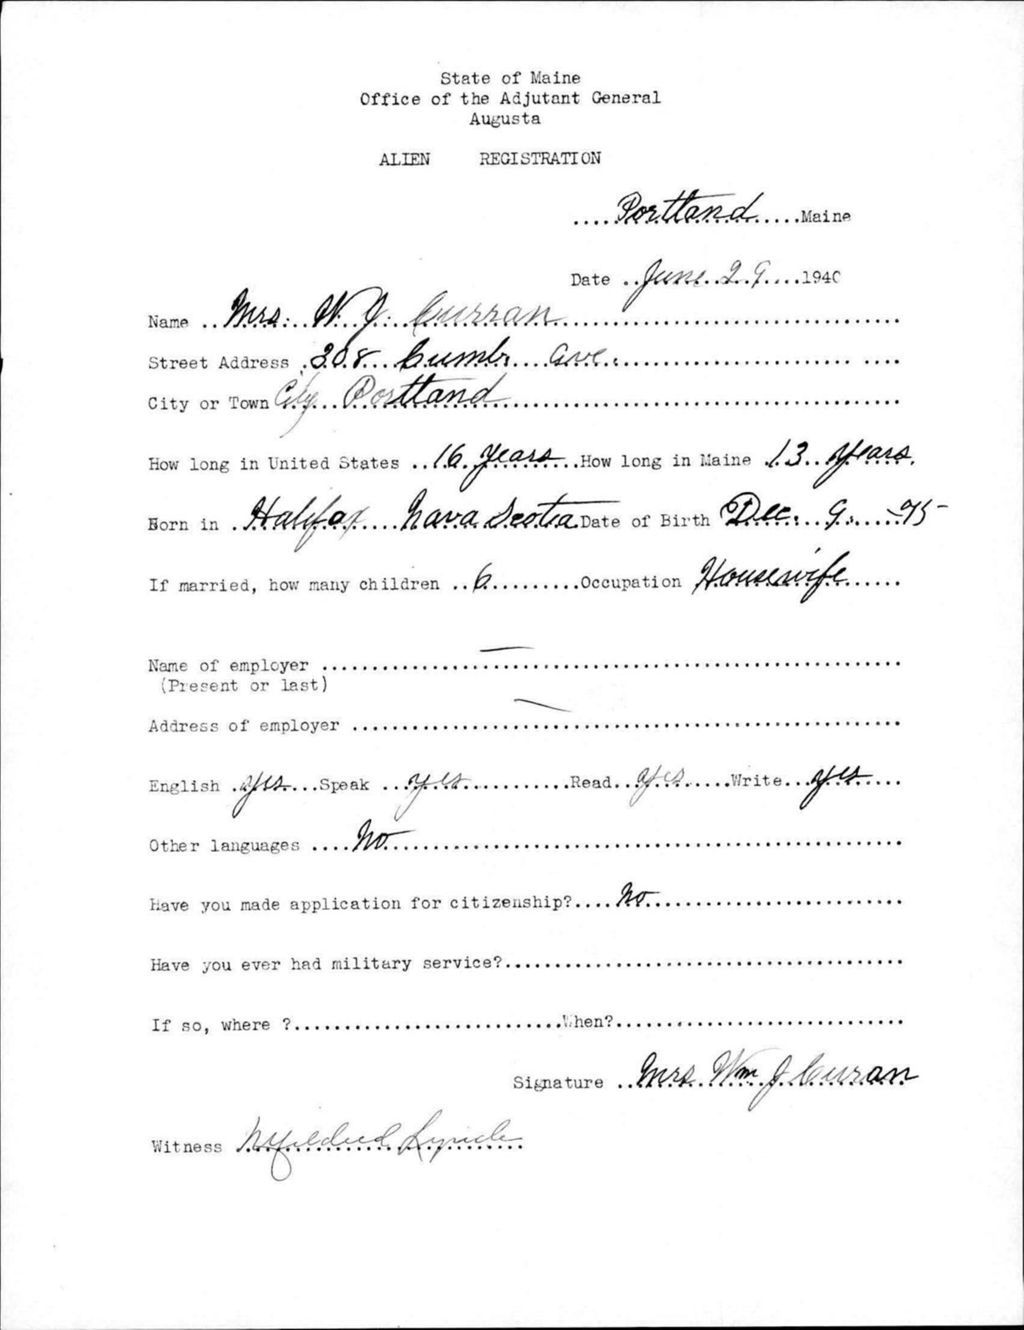 State of Maine
Office of the Adjutant General
Augusta
ALIEN REGISTRATION
....Portland.....Maine
Date ..June..29....1940
Name ..Mrs. W. J. Curran
Street Address .308 Cumb. Ave.
City or Town City Portland
How long in United States ..16 years...How long in Maine .13 years.
Born in .Halifax Nava Scotia Date of Birth Dec. 9.
If married, how many children ..6..........Occupation Housewife......
Name of employer —
(Present or last)
Address of employer —
English .yes...Speak ..yes...Read..yes...Write..yes...
Other languages ....No
Have you made application for citizenship?....No
Have you ever had military service?
If so, where ?..........When?
Signature ..Mrs. Wm J Curran
Witness Mildred Lynch